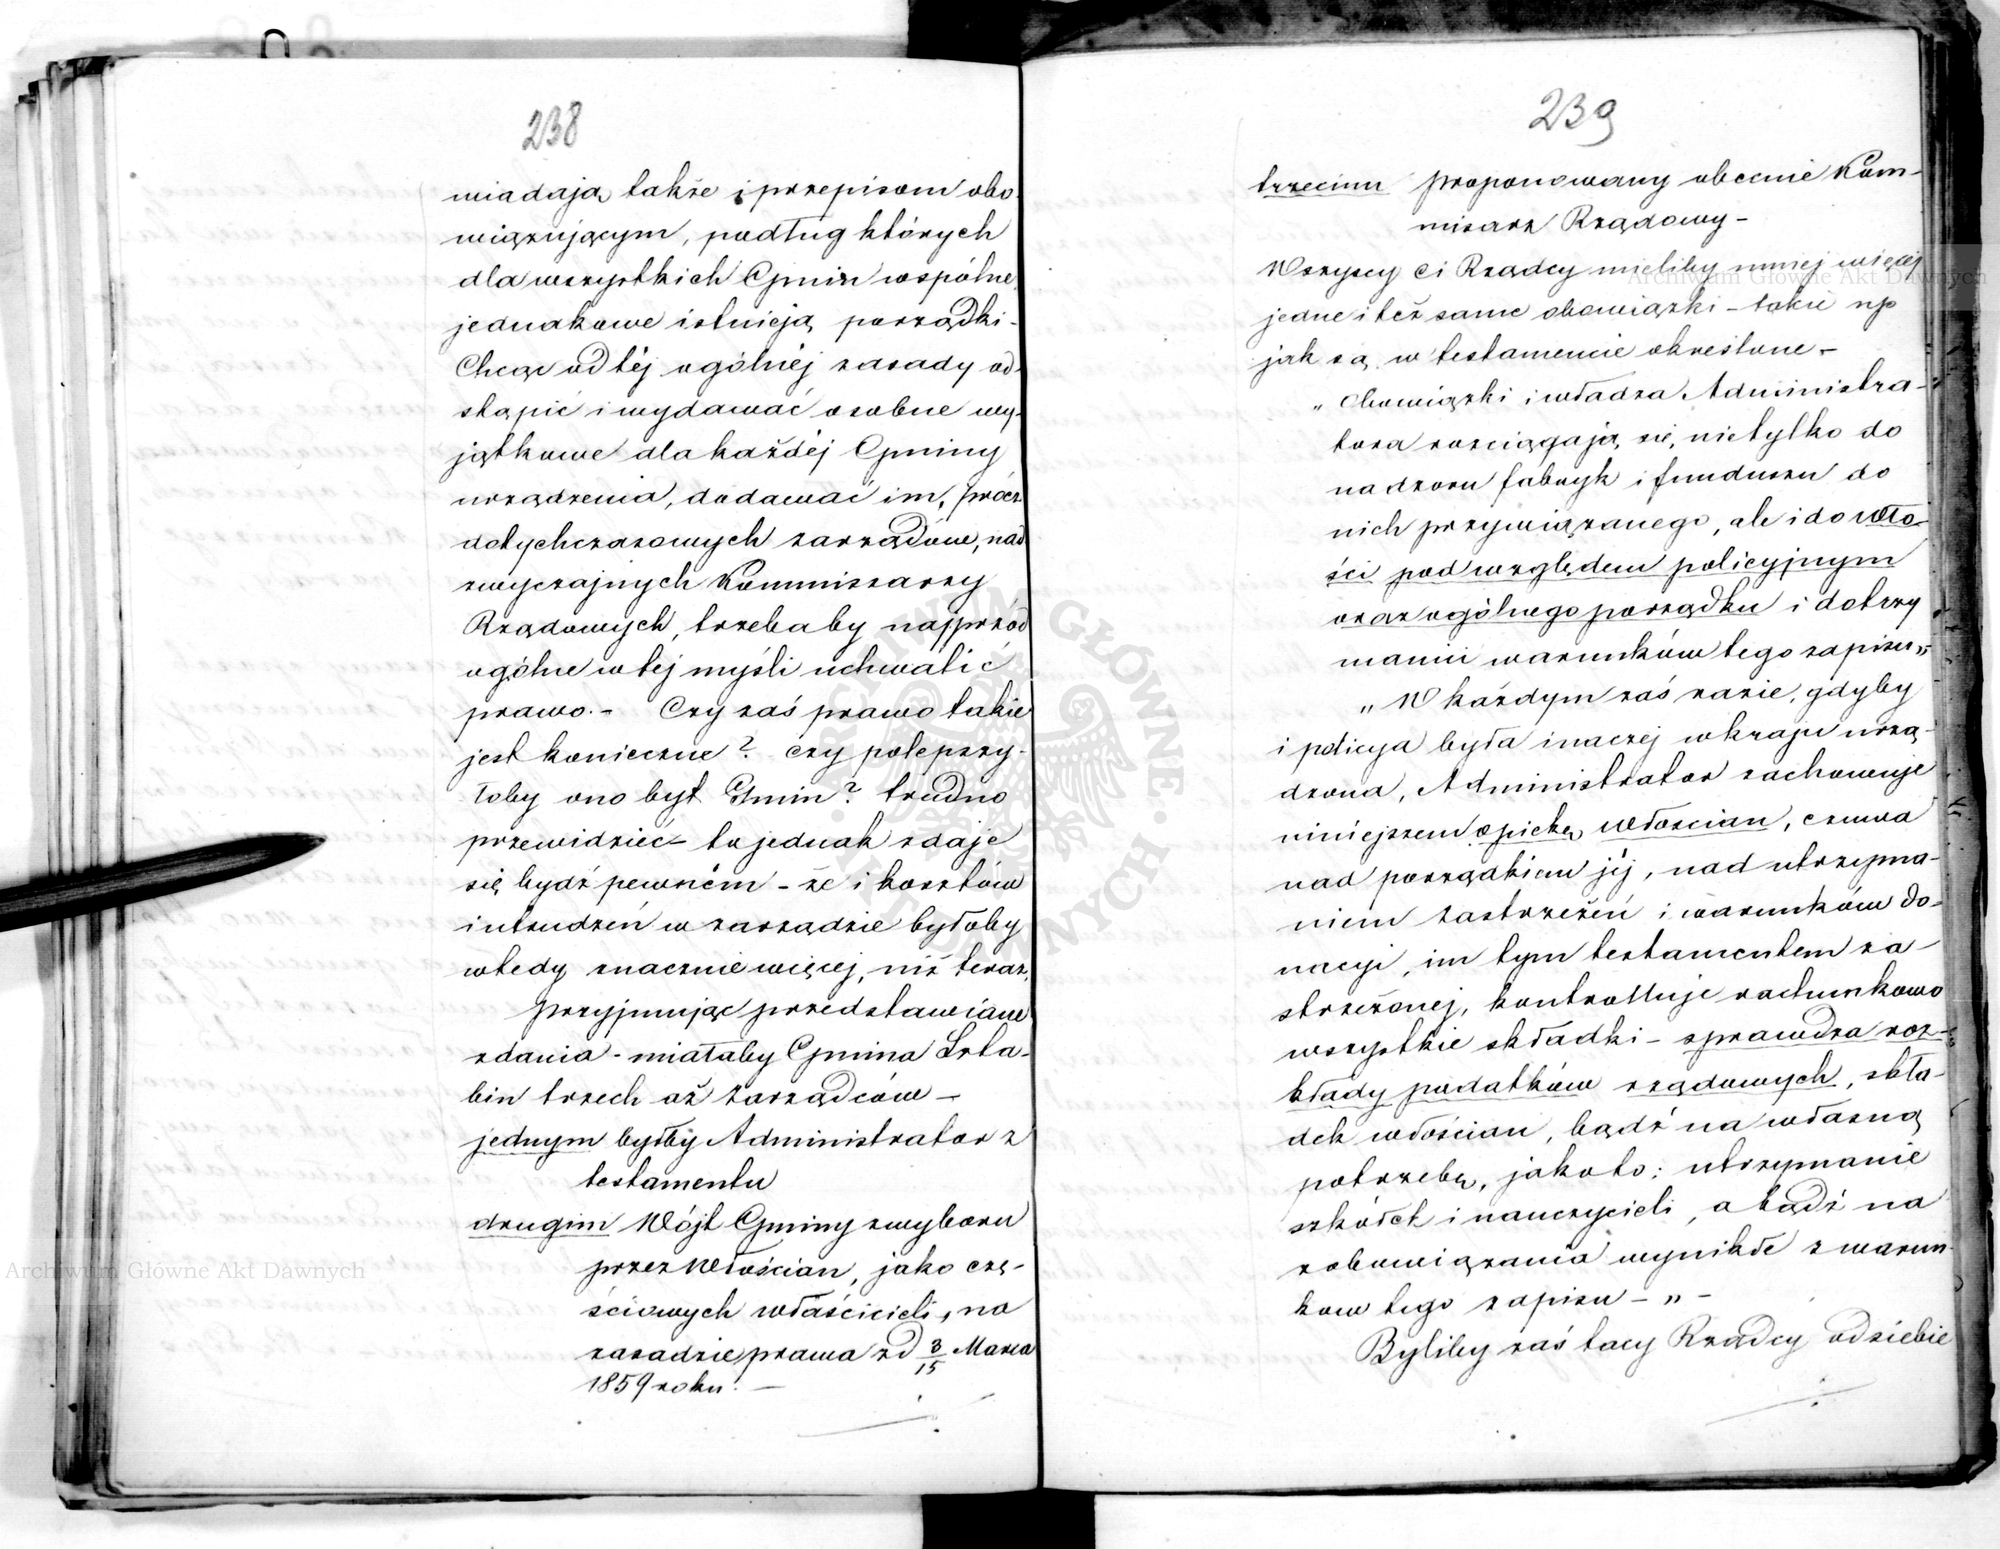 238
wiadają także i przepisom obo-
wiązującym, podług których
dla wszystkich Gmin wspólne,
jednakowe istnieją porządki -
Chcąc od téj ogólnéj zasady od-
stąpić i wydawać osobne wy-
jątkowe dla każdéj Gminy
urządzenia, dodawać im, prócz
dotychczasowych zarządów, nad
zwyczajnych Kommissarzy
Rządowych, trzebaby najprzód
ogólne w tej myśli uchwalić
prawo. - Czy zaś prawo takie
jest konieczne? czy polepszy-
łoby ono byt Gmin? trudno
przewidzieć - to jednak zdaje
się bydź pewném - że i kosztów
i utrudzeń w zarządzie byłoby
wtedy znacznie więcej, niż teraz.
Przyjmując przedstawione
zdania - miałaby Gmina Żela-
bin trzech aż zarządców -
jednym byłby Administrator z
testamentu
drugim Wójt Gminy z wyboru
przez Włościan, jako czę-
ściowych właścicieli, na
zasadzie prawa z d 3/15 Marca
1859 roku. -
239
trzecim proponowany obecnie Kom-
misarz Rządowy -
Wszyscy ci Rządcy mieliby mniej więcej
jedne i też same obowiązki - takie np
jak są w testamencie określone -
„Obowiązki i władza Administra-
tora rosciągają się, nietylko do
nadzoru fabryk i funduszu do
nich przywiązanego, ale i do Wło-
ści pod względem policyjnym
oraz ogólnego porządku i dotrzy
maniu warunków tego zapisu„
„W każdym zaś razie, gdyby
i policya była inaczej w kraju urzą-
dzona, Administrator zachowuje
niniejszem opiekę Włoscian, czuwa
nad porządkiem jéj, nad utrzyma-
niem zastrzeżeń i warunków do-
nacyi, im tym testamentem za-
strzeżonej, kontrolluje rachunkowo
wszystkie składki - sprawdza roz-
kłady podatków rządowych, skła-
dek włościan, bądź na własną
potrzebę, jakoto: utrzymanie
szkółek i nauczycieli, a bądź na
zobowiązania wynikłe z warun-
kow tego zapisu - „ -
Byliby zaś tacy Rządcy od siebie
Archiwum Główne Akt Dawnych
Archiwum Główne Akt Dawnych
ARCHIWUM GŁÓWNE AKT DAWNYCH